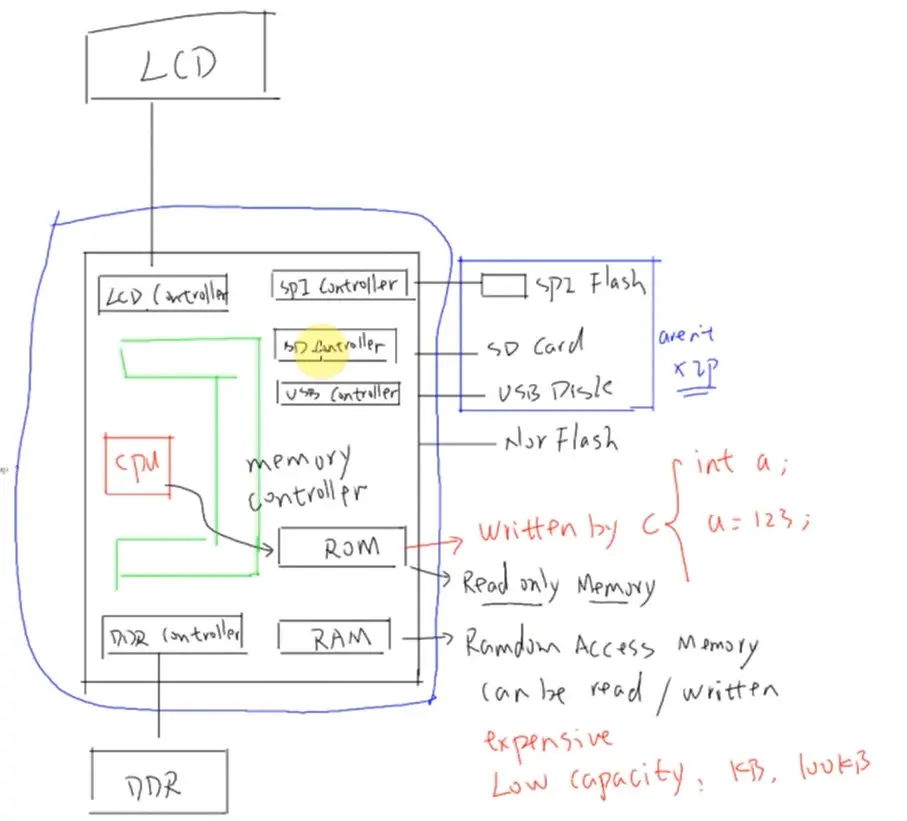 LCD
LCD Controller
SPI Controller
SPI Flash
SD Controller
SD Card
aren't
XIP
USB Controller
USB Diske
Nor Flash
CPU
memory
controller
int a;
a = 123;
ROM
written by C
Read only Memory
DDR Controller
RAM
Ramdom Access Memory
can be read / written
expensive
Low capacity, KB, 100KB
DDR